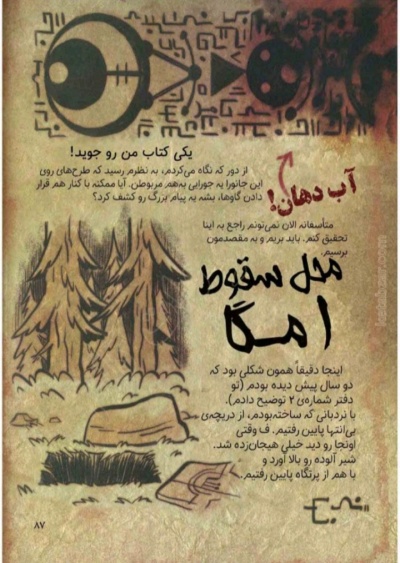 یکی کتاب من رو جوید!
از دور که نگاه می‌کردم، به نظرم رسید که طرح‌های روی
این جانورا یه جورایی به‌هم مربوطن. آیا ممکنه با کنار هم قرار
دادن گاوها، بشه یه پیام بزرگ رو کشف کرد؟
آب دهان!
متأسفانه الان نمی‌تونم راجع به اینا
تحقیق کنم. باید بریم و به مقصدمون
برسیم.
محل سقوط
امگا
اینجا دقیقاً همون شکلی بود که
دو سال پیش دیده بودم (تو
دفتر شماره‌ی ۲ توضیح دادم).
با نردبانی که ساخته‌بودم، از دریچه‌ی
بی‌انتها پایین رفتیم. ف وقتی
اونجا رو دید خیلی هیجان‌زده شد.
شیر آلوده رو بالا آورد و
با هم از پرتگاه پایین رفتیم.
۸۷